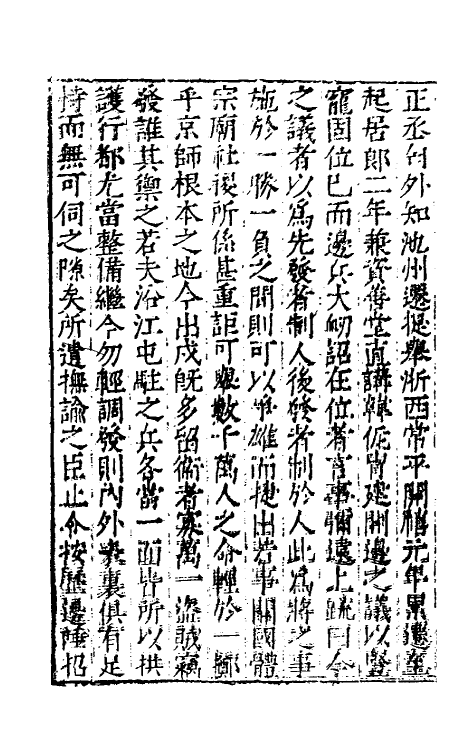 正丞台外知池州遷提舉浙西常平開禧元年累遷至
起居郎二年兼資善堂直講韓侂胄建開邊之議以豎
寵固位已而邊兵大衂詔在位者言事彌遠上疏曰今
之議者以爲先發者制人後發者制於人此爲將之事
施於一勝一負之間則可以爭雄而捷出若事關國體
宗廟社稷所係甚重詎可舉數千萬人之命輕於一擲
乎京師根本之地今出戍旣多留衞者寡萬一盜賊竊
發誰其禦之若夫㳂江屯駐之兵各當一面皆所以拱
護行都尤當整備繼今勿輕調發則內外表裏俱有足
恃而無可伺之隙矣所遣撫諭之臣止令按歷邊陲招